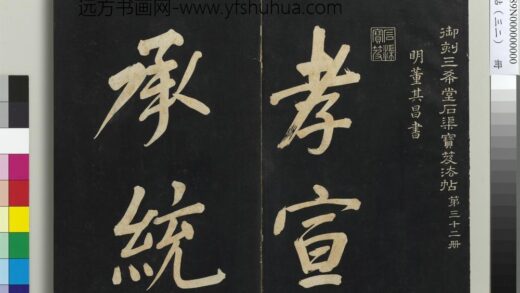 远方书画网-www.yfshuhua.com
御刻三希堂石渠寶笈法帖第三十二册
明董其昌書
石渠寶笈
孝宣
承統